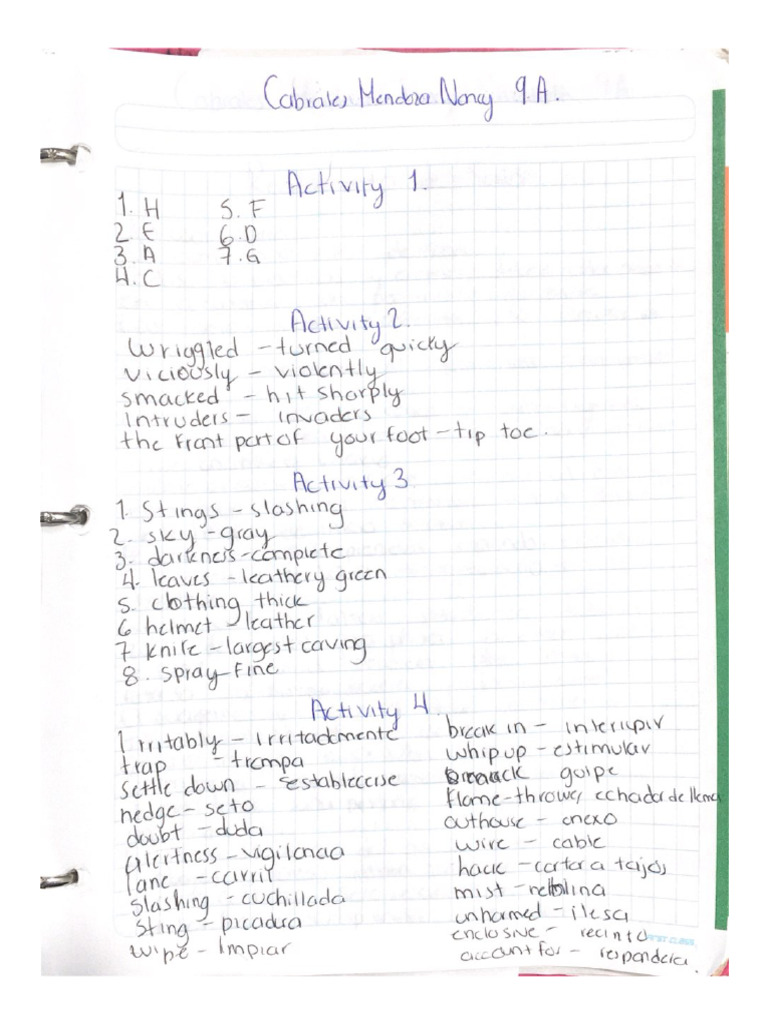 Cabrales Mendoza Nancy 9A.
Activity 1.
1. H
2. E
3. A
4. C
5. F
6. D
7. G
Activity 2.
Wriggled - turned quicky
viciously - violently
smacked - hit sharply
Intruders - invaders
the front part of your foot - tip toe.
Activity 3
1. Stings - slashing
2. sky - gray
3. darkness - complete
4. leaves - leathery green
5. clothing thick
6 helmet - leather
7 knife - largest carving
8. spray - fine
Activity 4
Irritably - Irritadamente
trap - trampa
settle down - establecerse
hedge - seto
doubt - duda
Alertness - vigilancia
lane - carril
Slashing - cuchillada
Sting - picadura
wipe - limpiar
break in - interrupir
whip up - estimular
golpe
flame-throwe, echador de llama
outhouse - anexo
wire - cable
hack - cortar a tajos
mist - neblina
unharmed - ilesa
enclosive - recinto
account for - respondera